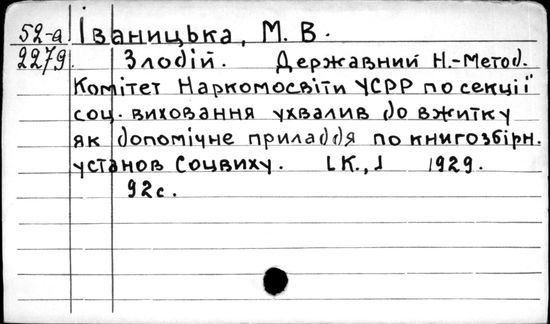 52-а Іваницька, М. В.
2279 Злодій. Державний Н.-Метод.
Комітет Наркомосвіти УСРР по секції
соц. виховання ухвалив до вжитку
як допомічне приладдя по книгозбірн.
установ Соцвиху. [К.,] 1929.
92с.